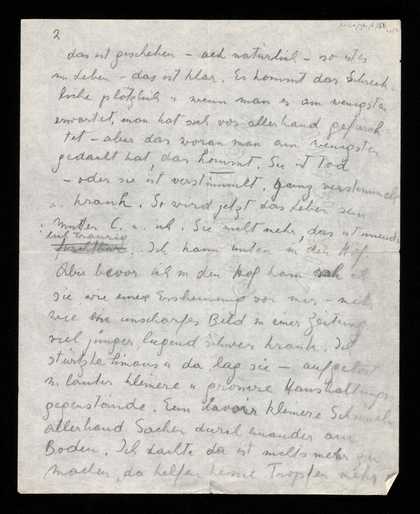 2
das ist geschehen – ach natürlich – so ist es
im Leben – das ist klar. Es kommt das Schreck-
liche plötzlich u wenn man es am wenigsten
erwartet, man hat sich vor allerhand gefürch
tet – aber das woran man am wenigsten
gedacht hat, das kommt. Sie ist Tod
– oder sie ist verstümmelt. ganz verstümmelt
u. krank. So wird jetzt das Leben sein
Mutter C. u. ich. Sie nicht mehr, das ist
traurig
furchtbar. Ich kam unten in den Hof
Aber bevor ich in den Hof kam sah ich
sie wie eine Erscheinung vor mir –
wie ein unscharfes Bild in einer Zeitung
viel jünger, schwer krank. Ich
stürtzte hinaus u da lag sie – aufgelöst
in lauter kleinere u grössere Haushaltungs
gegenstände. Ein kleinere
allerhand Sachen durch einander am
Boden. Ich dachte da ist nichts mehr zu
machen, da helfen keine Tropfen mehr